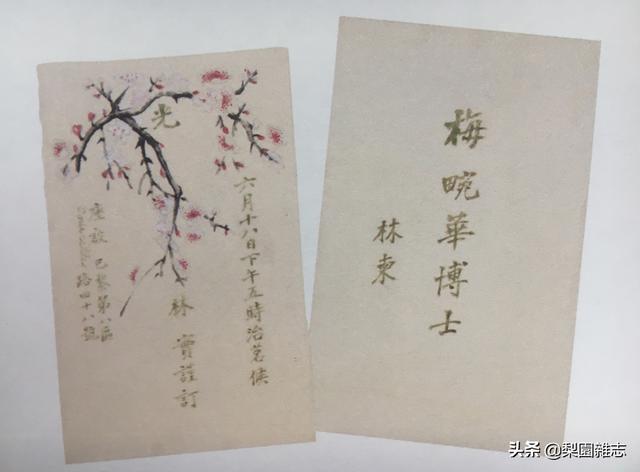 六月十八日下午五時治茗候
光
林 實謹訂
座設 巴黎第八區
路四十八號
梅畹華博士
林柬
头条 @梨園雜志